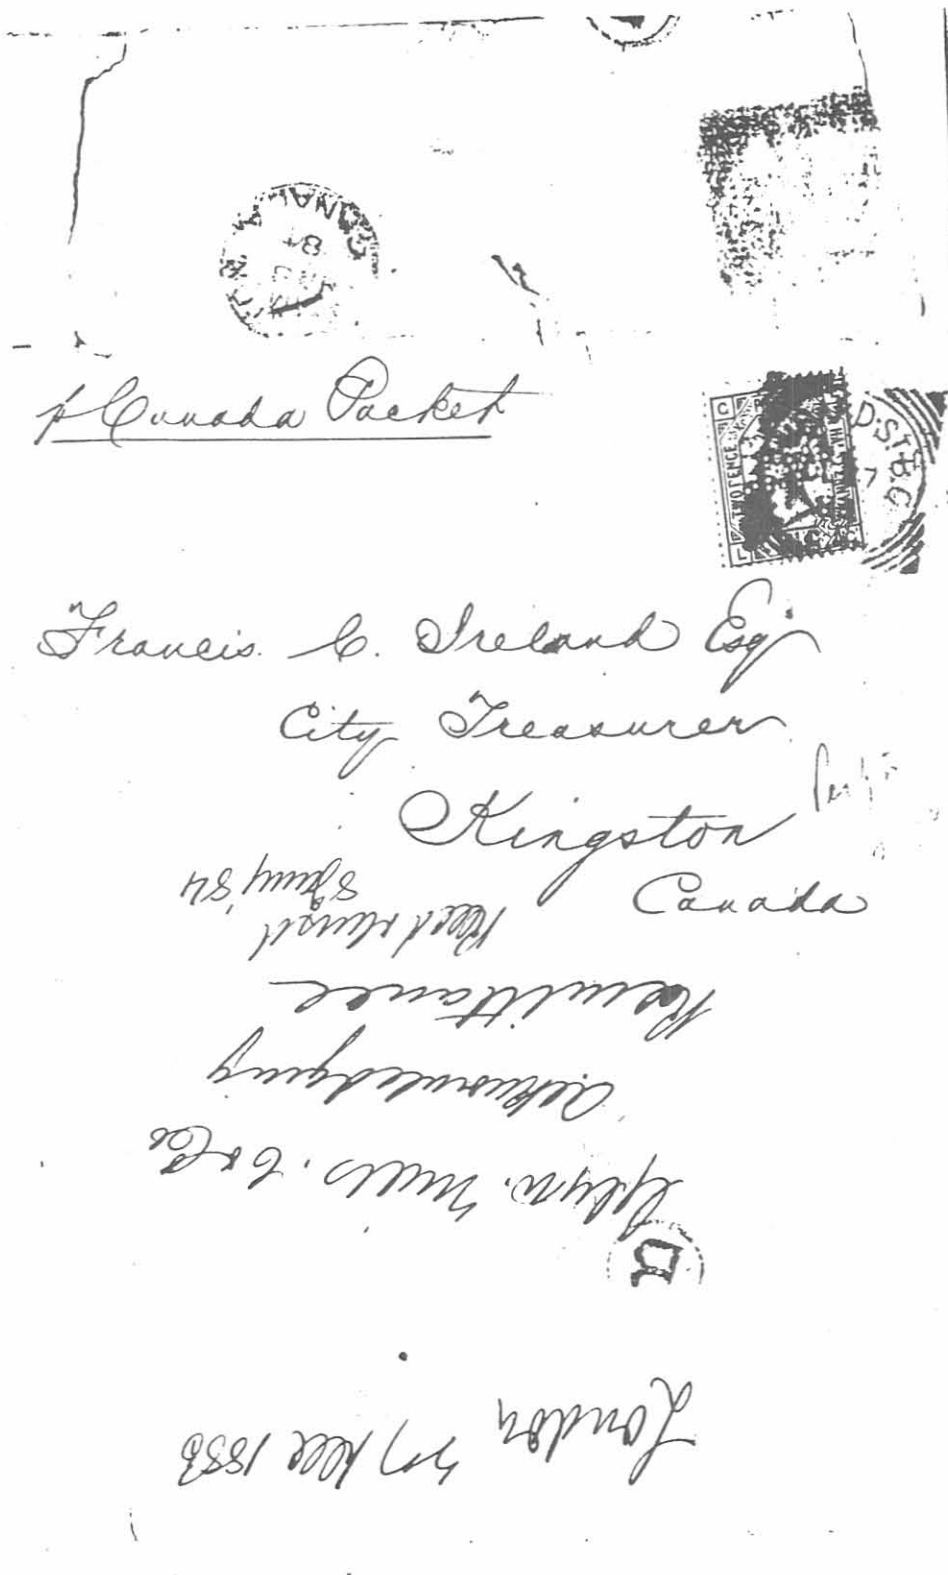 CANADA
84
p Canada Packet
TWO PENCE
D.S.T.B.G
7
Francis C. Ireland Esqr
City Treasurer
Kingston
Canada
London 27 Dec 1883
Glyn. Mills. C & Co
Acknowledging
Remittance
Recd & Ansd
8 Jany '84